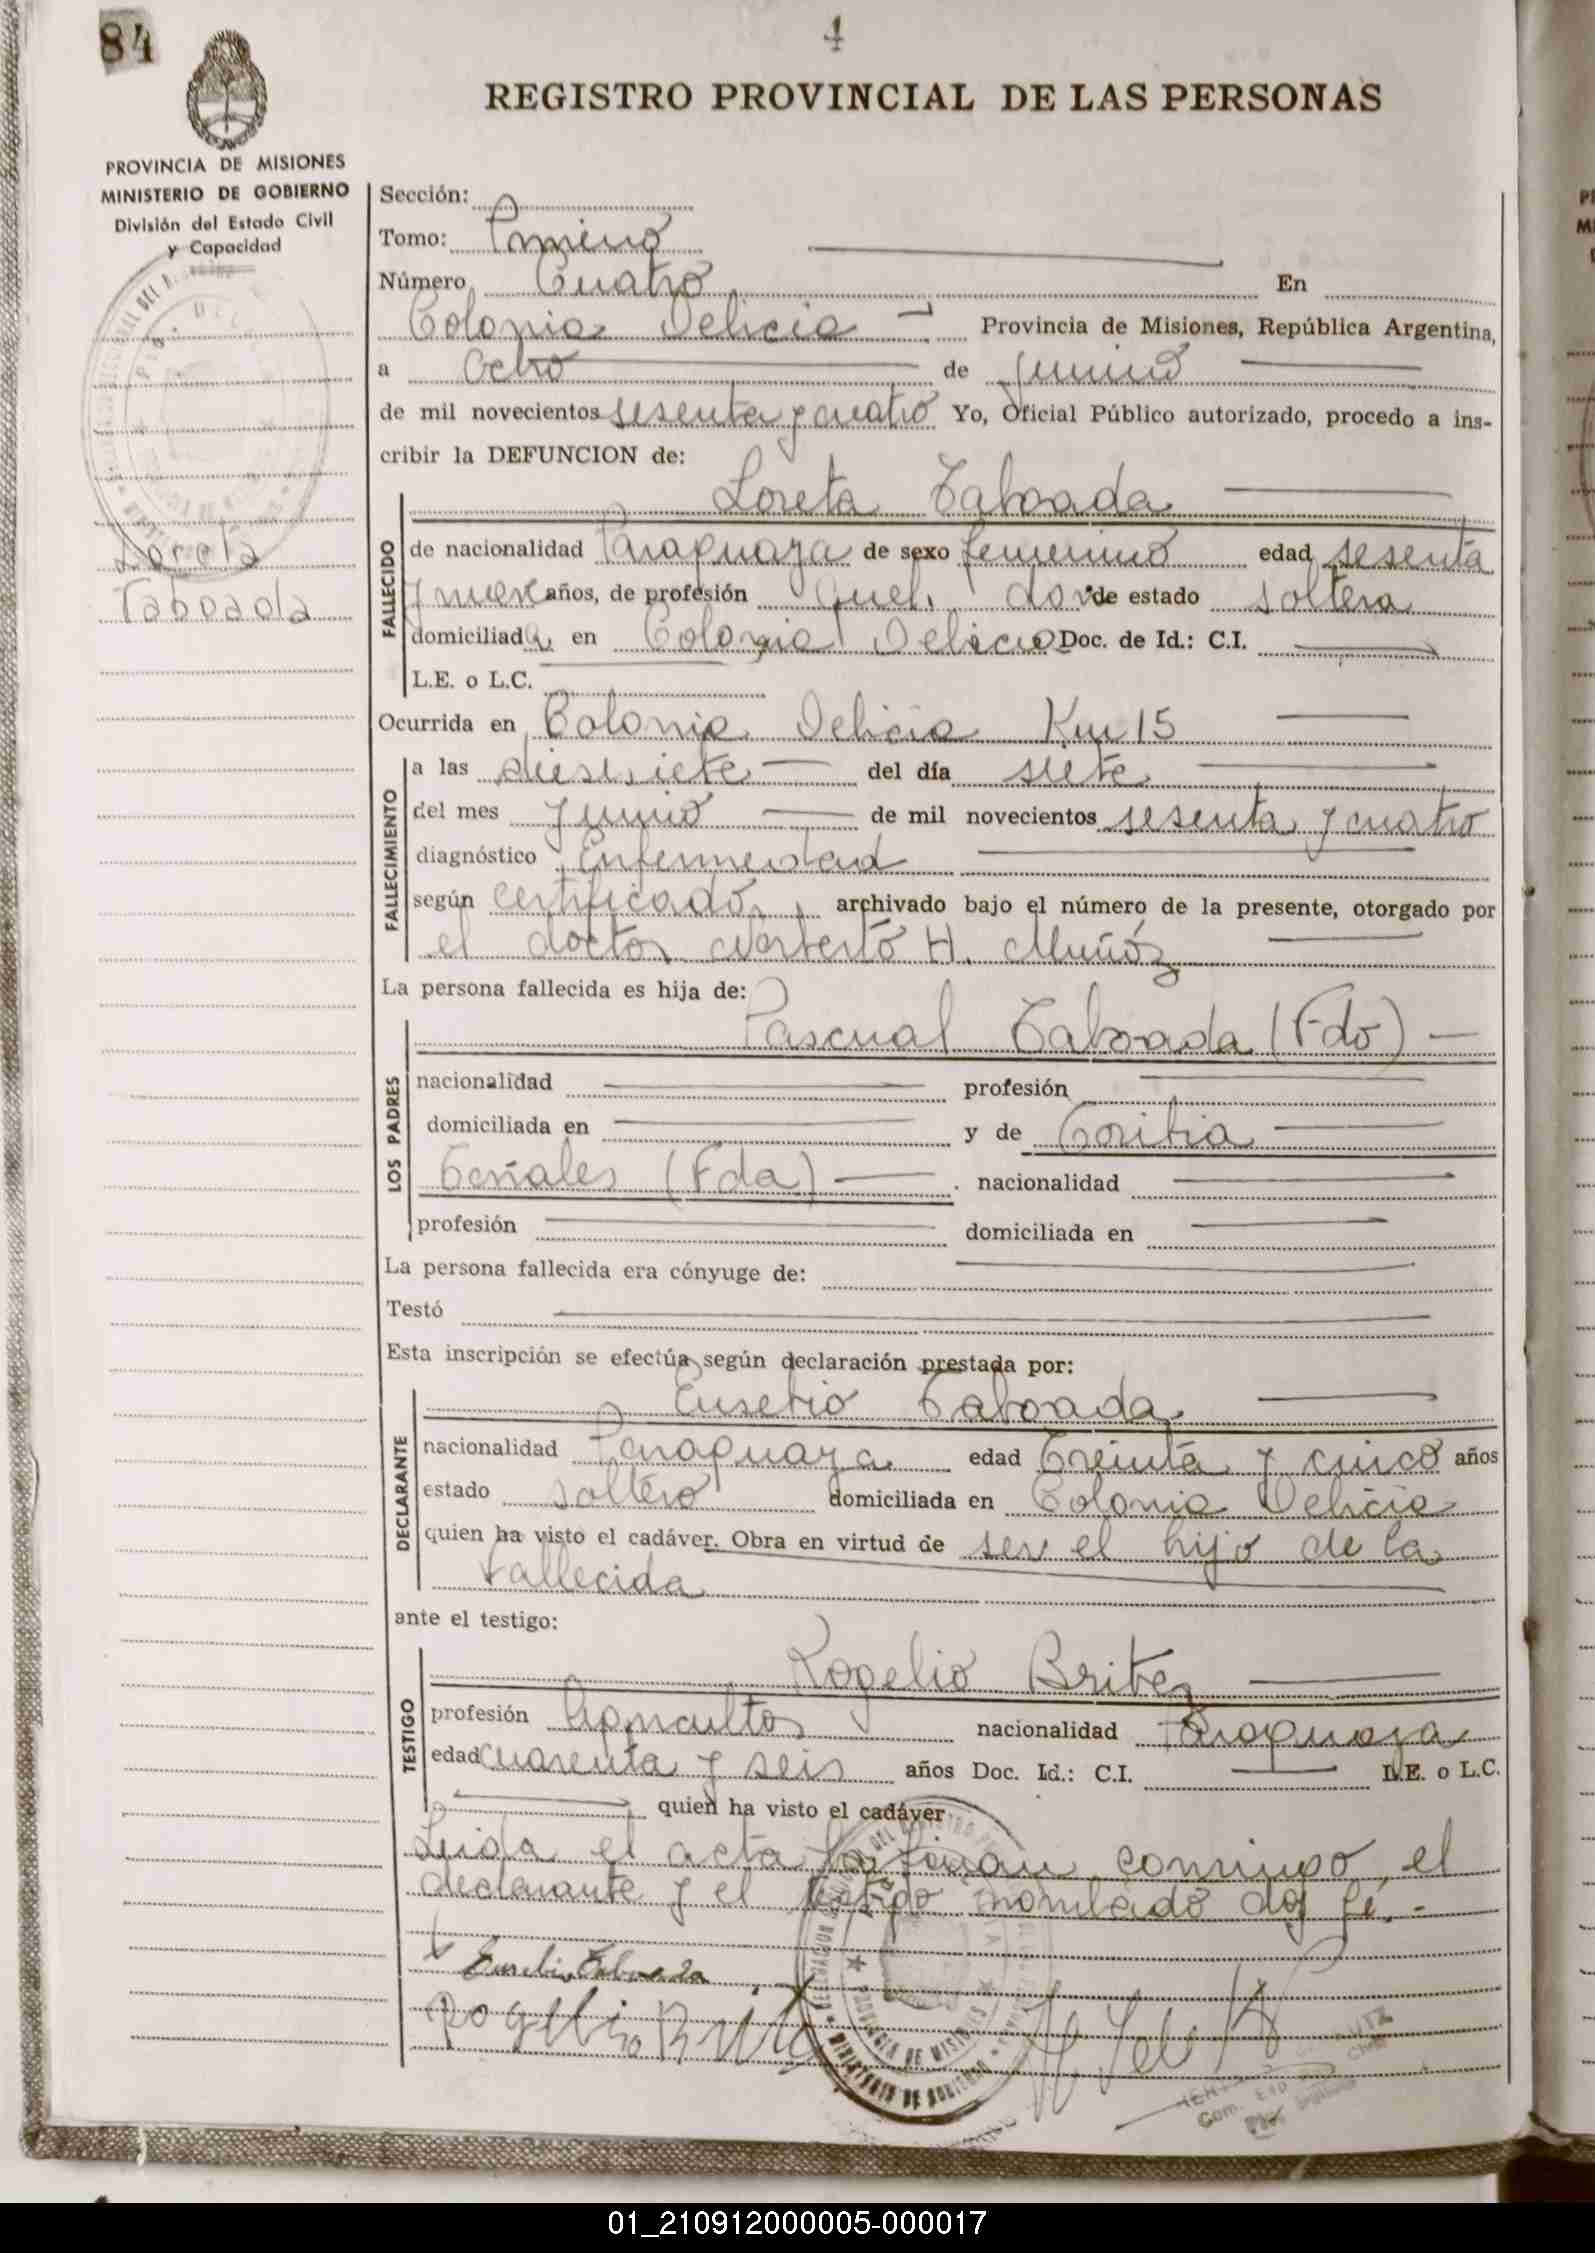 84
4
REGISTRO PROVINCIAL DE LAS PERSONAS
PROVINCIA DE MISIONES
MINISTERIO DE GOBIERNO
División del Estado Civil
y Capacidad
Loreta
Taboada
Sección:
Tomo: Primero
Número Cuatro En
Colonia Delicia Provincia de Misiones, República Argentina,
a ocho de junio
de mil novecientos sesenta y cuatro Yo, Oficial Público autorizado, procedo a ins-
cribir la DEFUNCION de:
Loreta Taboada
FALLECIDO
de nacionalidad Paraguaya de sexo femenino edad sesenta
y nueve años, de profesión Queh. dom. de estado soltera
domiciliada en Colonia Delicia Doc. de Id.: C.I.
L.E. o L.C.
Ocurrida en Colonia Delicia Km 15
FALLECIMIENTO
a las diesisiete del día siete
del mes Junio de mil novecientos sesenta y cuatro
diagnóstico Enfermedad
según certificado, archivado bajo el número de la presente, otorgado por
el doctor Norberto H. Muñóz
La persona fallecida es hija de:
Pascual Taboada (Fdo)
LOS PADRES
nacionalidad profesión
domiciliada en y de
(Fda) nacionalidad
profesión domiciliada en
La persona fallecida era cónyuge de:
Testó
Esta inscripción se efectúa según declaración prestada por:
Eusebio Taboada
DECLARANTE
nacionalidad Paraguaya edad Treinta y cinco años
estado soltero domiciliada en Colonia Delicia
quien ha visto el cadáver. Obra en virtud de ser el hijo de la
fallecida
ante el testigo:
Rogelio Britez
TESTIGO
profesión Agricultor nacionalidad Paraguaya
edad cuarenta y seis años Doc. Id.: C.I. L.E. o L.C.
quien ha visto el cadáver
Leida el acta la firman conmigo, el
declarante y el testigo nombrado doy fé.-
Eusebio Taboada
Rogelio Britez
PROVINCIA DE MISIONES
MINISTERIO DE GOBIERNO
01_210912000005-000017